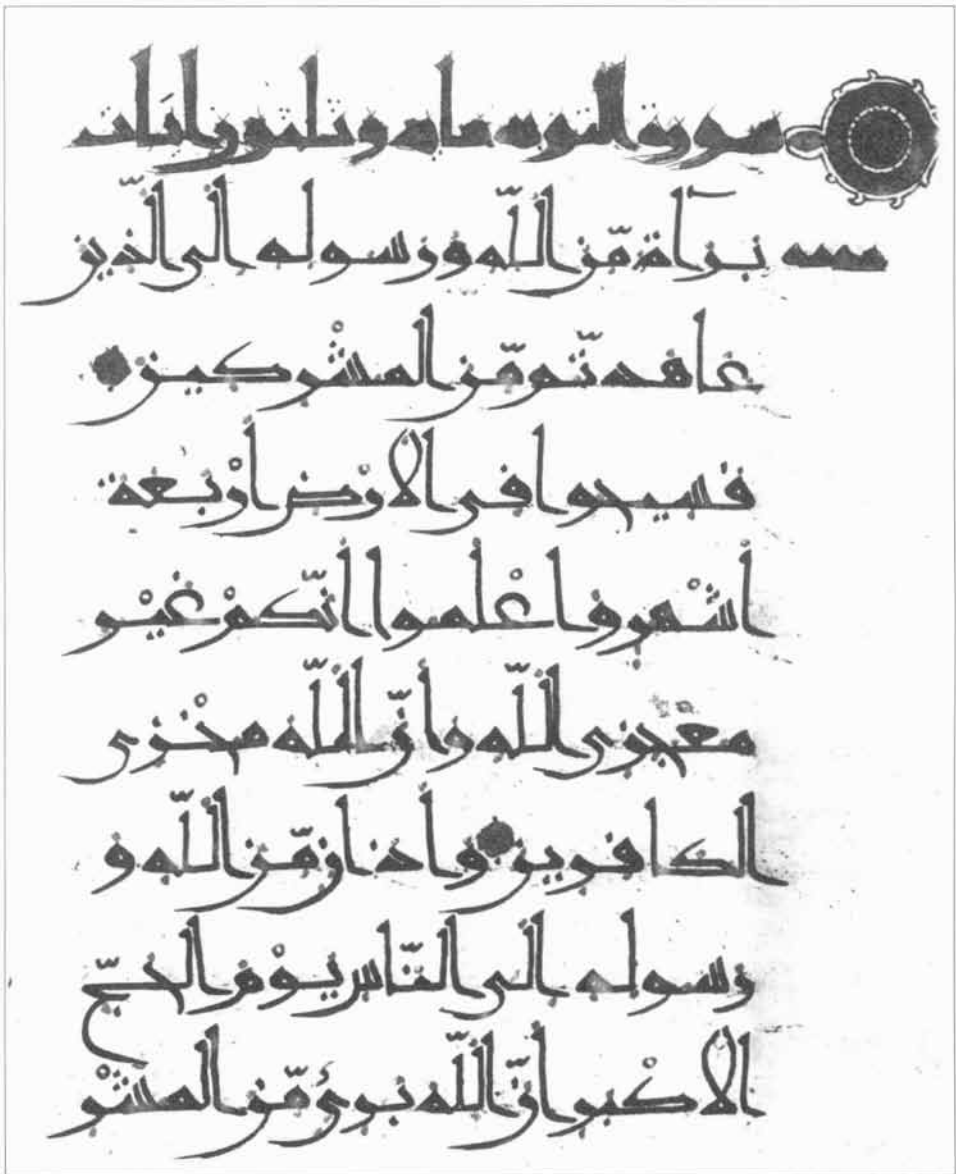 سورة التوبه مايه وثلثون ايات
بَرَآءَةٌ مِّنَ اللَّهِ وَرَسُولِهِ إِلَى الَّذِينَ
عَاهَدتُّم مِّنَ الْمُشْرِكِينَ
فَسِيحُوا فِي الْأَرْضِ أَرْبَعَةَ
أَشْهُرٍ وَاعْلَمُوا أَنَّكُمْ غَيْرُ
مُعْجِزِي اللَّهِ وَأَنَّ اللَّهَ مُخْزِي
الْكَافِرِينَ وَأَذَانٌ مِّنَ اللَّهِ وَ
رَسُولِهِ إِلَى النَّاسِ يَوْمَ الْحَجِّ
الْأَكْبَرِ أَنَّ اللَّهَ بَرِيءٌ مِّنَ الْمُشْرِ